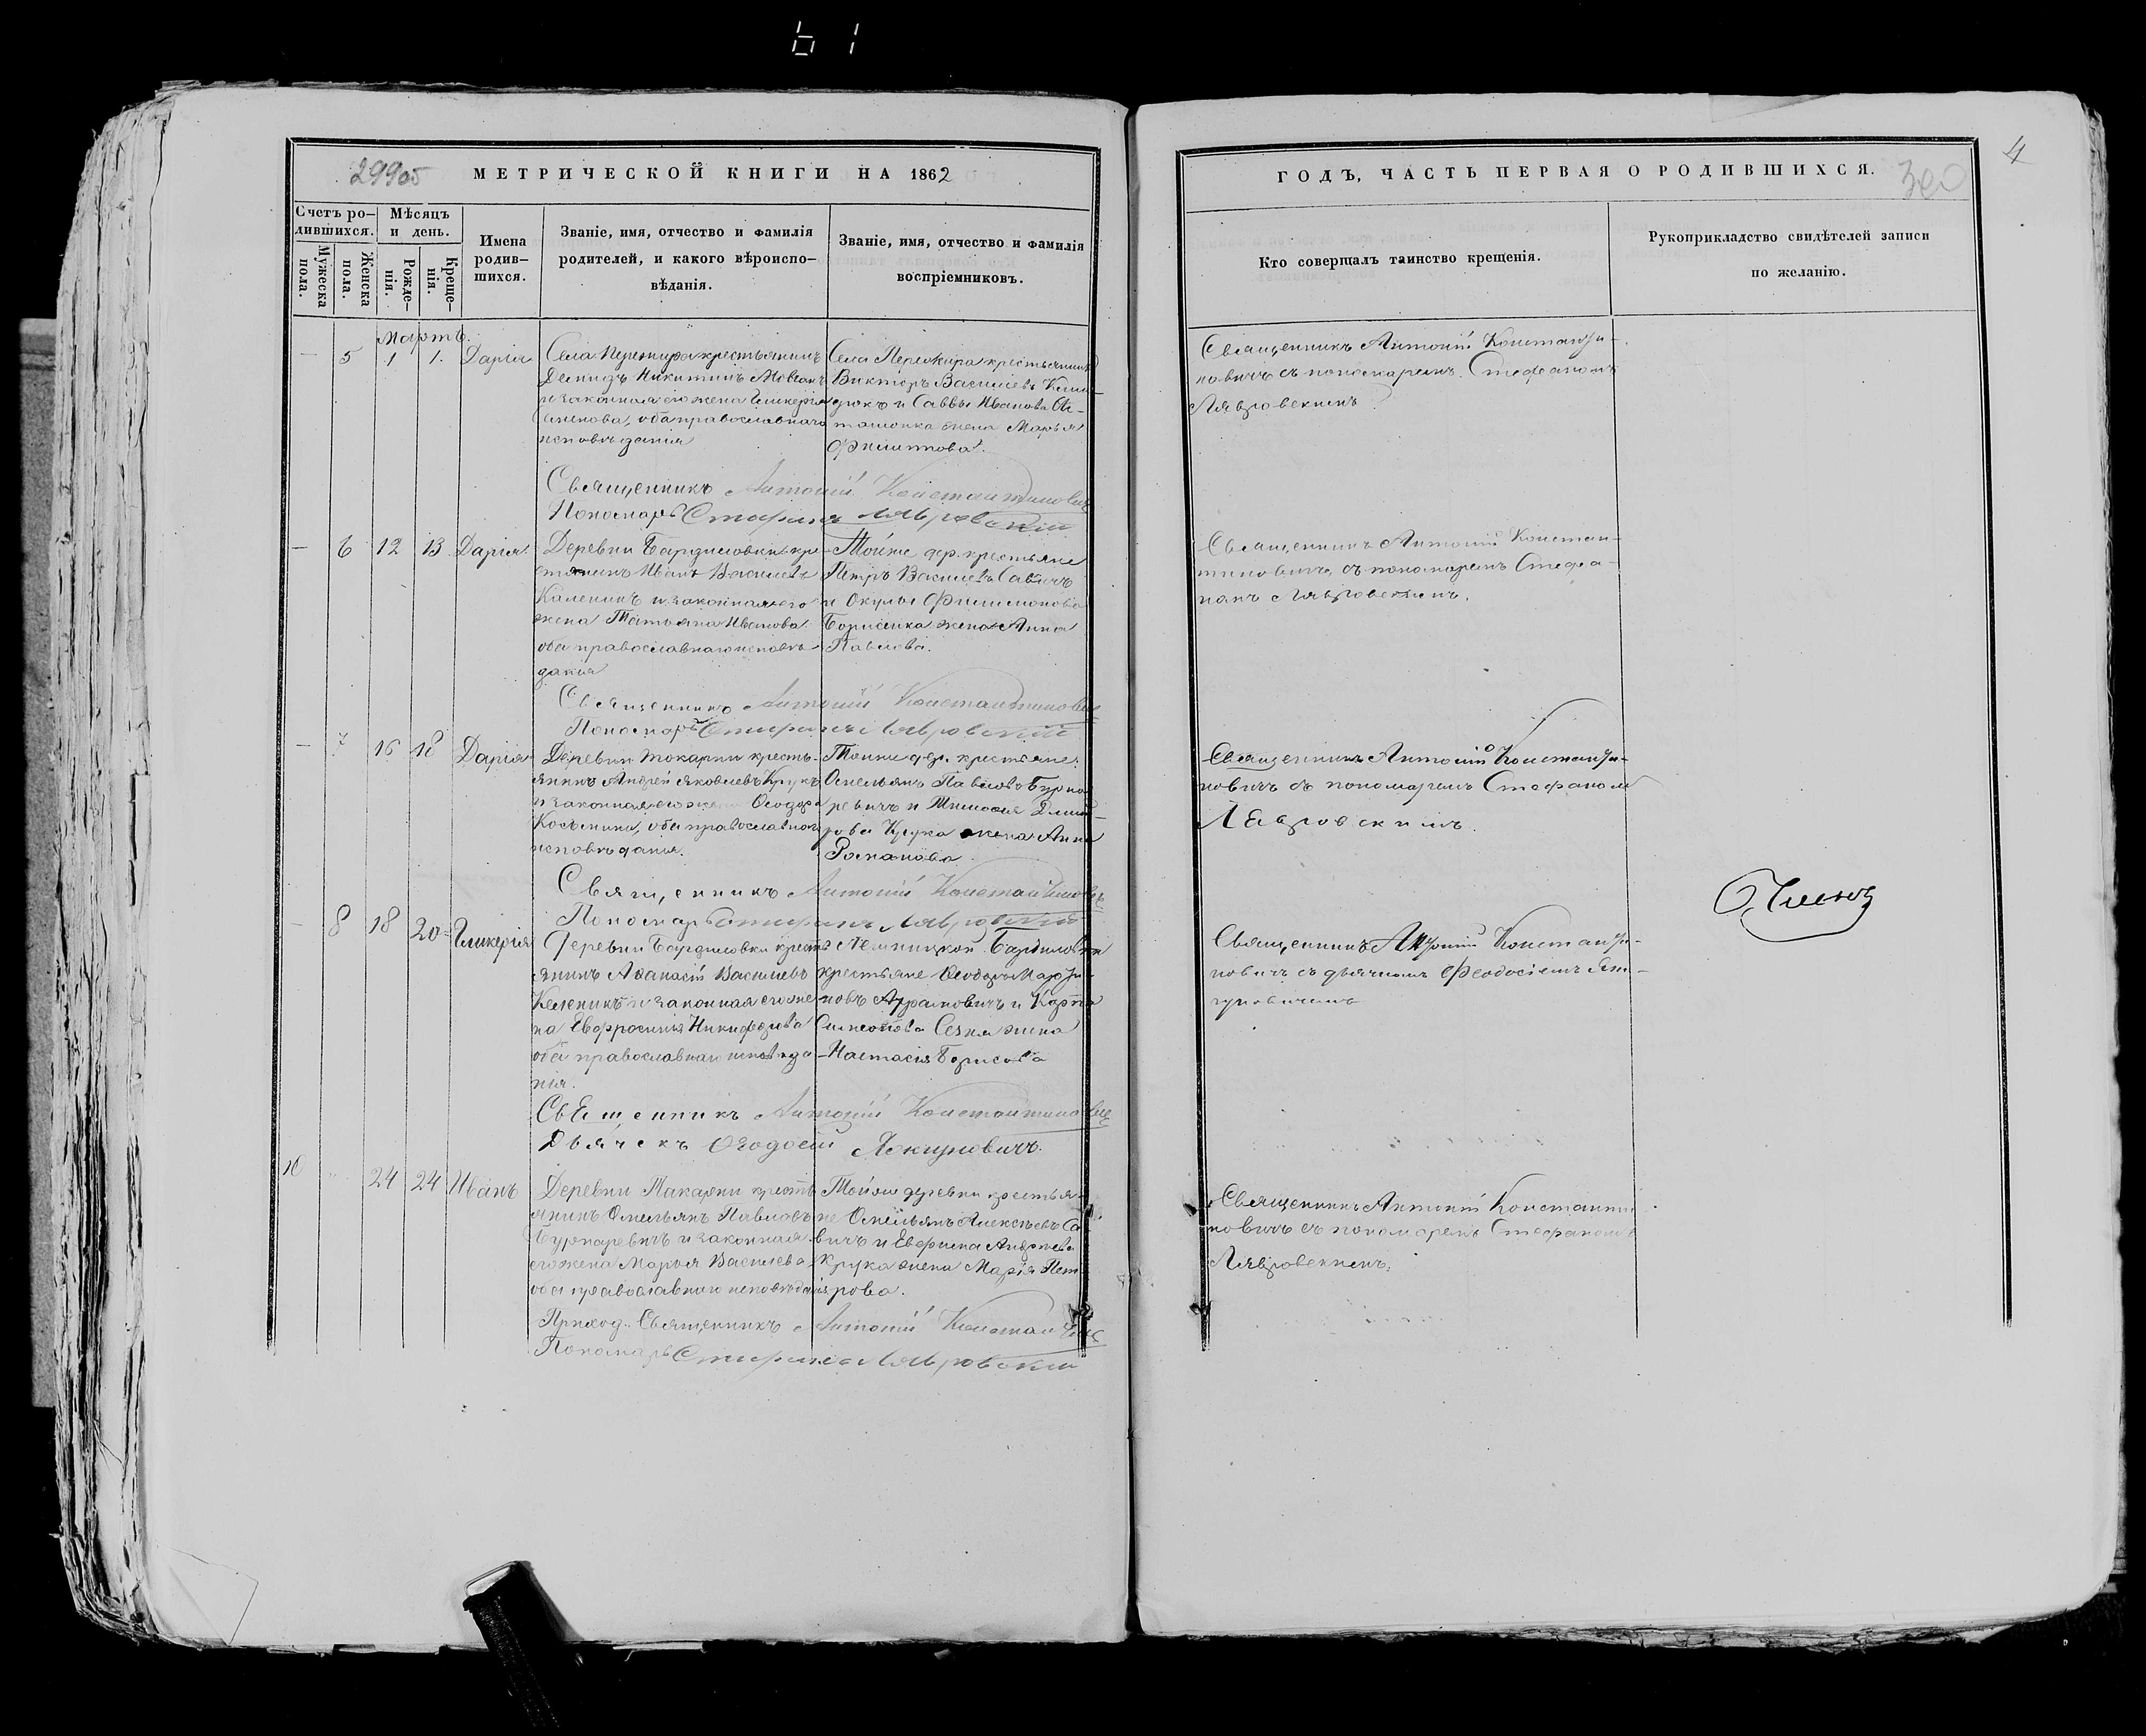 61
299об
МЕТРИЧЕСКОЙ КНИГИ НА 1862
Счетъ ро-
дившихся.
Мѣсяцъ
и день.
Мужеска
пола.
Женска
пола.
Рожде-
нія.
Креще-
нія.
Имена
родив-
шихся.
Званіе, имя, отчество и фамилія
родителей, и какого вѣроиспо-
вѣданія.
Званіе, имя, отчество и фамилія
воспріемниковъ.
Мартъ.
5 1 1. Дарія
Села Пережира крестьянинъ
Демидъ Никитинъ
и законная его жена Гликерія
Семенова, оба православнаго
исповѣданія
Села Пережира крестьянинъ
Викторъ Васильевъ
и Саввы Иванова
жена Марья
Филипова.
Священникъ Антоній Константиновичъ
Пономарь Стефанъ Лявровскій
6 12 13 Дарія
Деревни Бардиловки кре-
стянинъ Иванъ Васильевъ
Каленикъ и законная его
жена Татьяна Иванова
оба православнаго исповѣ-
данія
Тойже дер. крестьяне
Петръ Васильевъ Савичъ
и Окулы Филимонова
Борисика жена Анна
Павлова.
Священникъ Антоній Константиновичъ
Пономарь Стефанъ Лявровскій
7 16 18 Дарія
Деревни Токарни кресть-
янинъ Андрей Яковлевъ Крукъ
и законная его жена Ѳеодора
Косьмина, оба православнаго
исповѣданія.
Тойже дер. крестьяне:
Омельянъ Павловъ Бурна-
ревичъ и Тимоѳея Дмит-
рова Крука жена Анна
Романова
Священникъ Антоній Константиновичъ
Пономарь Стефанъ Лявровскій
8 18 20 Гликерія
Деревни Бардиловки кресть-
янинъ Аѳанасій Васильевъ
Каленикъ и законная его же-
на Евфросинія Никифорова
оба православнаго исповѣда-
нія.
Бардиловки
крестьяне Ѳеодоръ Марти-
новъ Абрамовичъ и Карпа
Симеонова жена
Настасія Борисова
Священникъ Антоній Константиновичъ
Дьячекъ Ѳеодосій
10 24 24 Иванъ
Деревни Макарни кресть-
янинъ Омельянъ Павловъ
Бурнаревичъ и законная
его жена Марья Васильева
оба православнаго исповѣданія
Тойже деревни крестья-
не Омельянъ Алексѣевъ Са-
вичъ и Ефрема Андреева
Крука жена Марія Пет-
рова.
Приход. Священникъ Антоній Константиновичъ
Пономарь Стефанъ Лявровскій
4
ГОДЪ, ЧАСТЬ ПЕРВАЯ О РОДИВШИХСЯ.
300
Кто совершалъ таинство крещенія.
Рукоприкладство свидѣтелей записи
по желанію.
Священникъ Антоній Константи-
новичъ съ пономаремъ Стефаномъ
Лявровскимъ
Священникъ Антоній Констан-
тиновичъ, съ пономаремъ Стефа-
номъ Лявровскимъ.
Священникъ Антоній Константи-
новичъ съ пономаремъ Стефаномъ
Лявровскимъ.
Священникъ Антоній Константи-
новичъ съ дьячкомъ Феодосіемъ
Священникъ Антоній Константи-
новичъ съ пономаремъ Стефаномъ
Лявровскимъ.